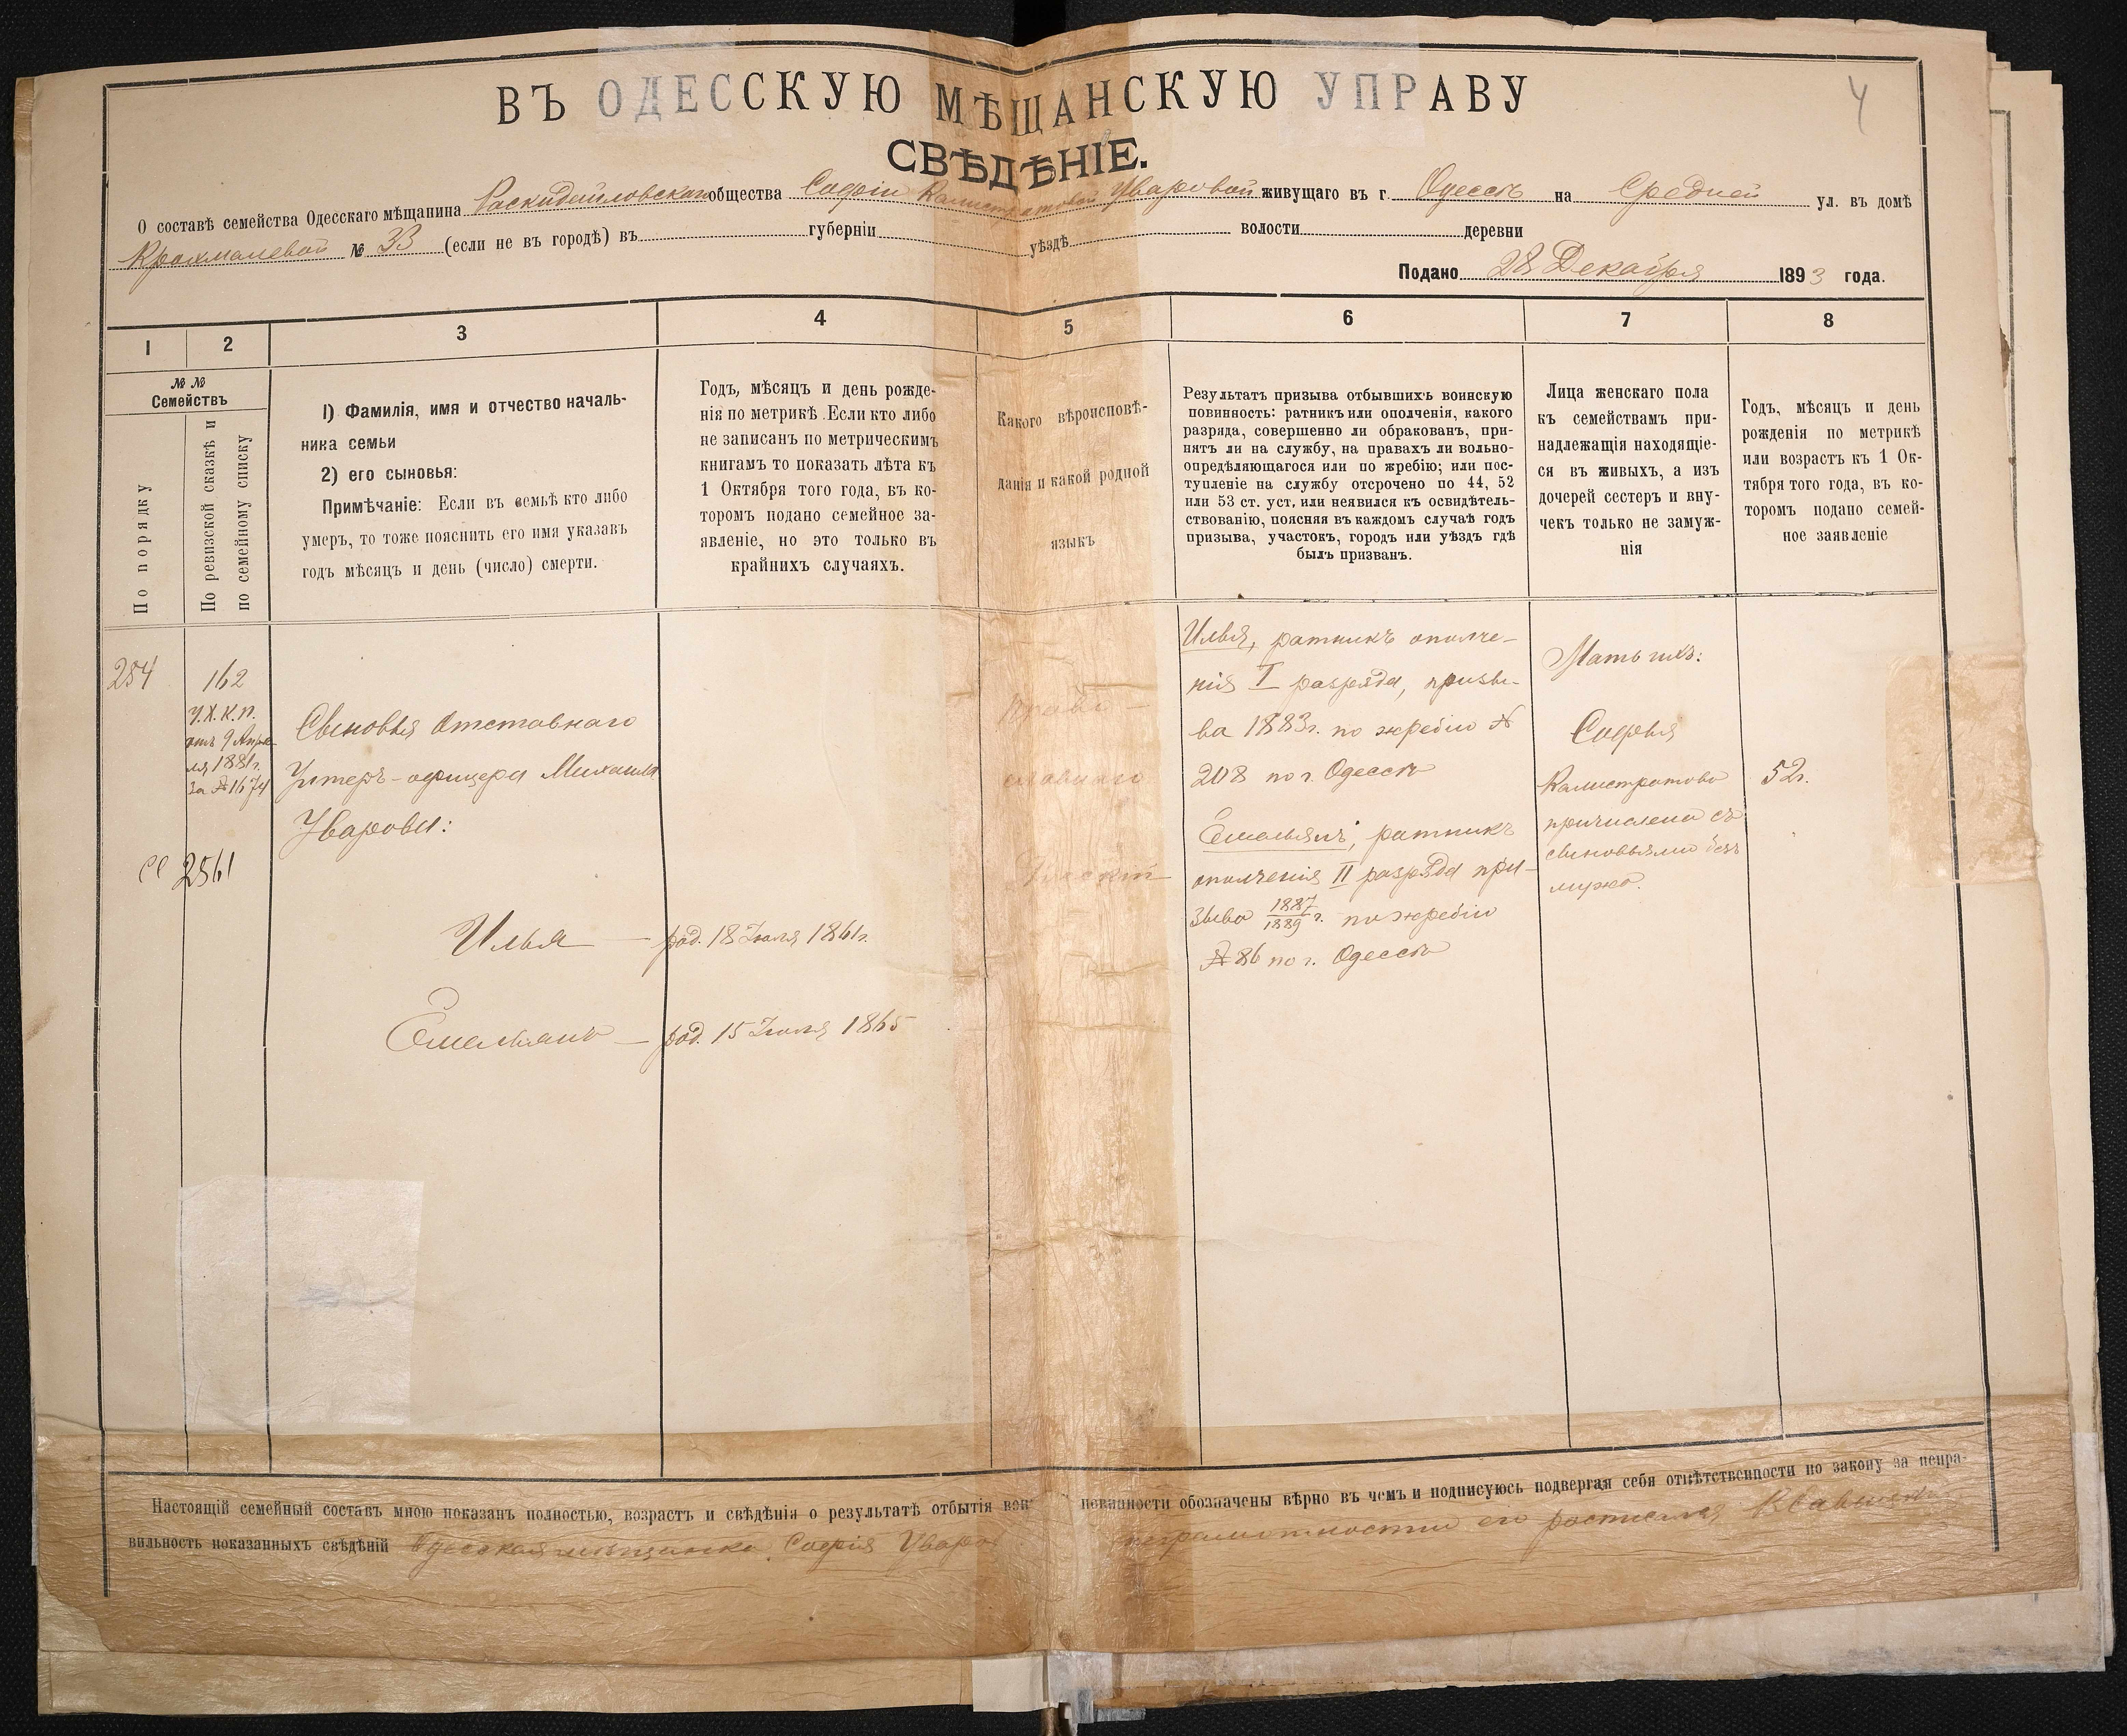 4
ВЪ ОДЕССКУЮ МѢЩАНСКУЮ УПРАВУ
СВѢДѢНІЕ.
О составѣ семейства Одесскаго мѣщанина Раскидайловскаго общества Софіи Калистратовой Уваровой живущаго въ г. Одессѣ на Средней ул. въ домѣ
Крахмалевой № 33 (если не въ городѣ) въ губерніи уѣздѣ волости деревни
Подано 28 Декабря 1893 года.
1 2 3 4 5 6 7 8
№ №
Семействъ
По порядку
По ревизской сказкѣ и
по семейному списку
1) Фамилія, имя и отчество началь-
ника семьи
2) его сыновья:
Примѣчаніе: Если въ семьѣ кто либо
умеръ, то тоже пояснить его имя указавъ
годъ мѣсяцъ и день (число) смерти.
Годъ, мѣсяцъ и день рожде-
нія по метрикѣ. Если кто либо
не записанъ по метрическимъ
книгамъ то показать лѣта къ
1 Октября того года, въ ко-
торомъ подано семейное за-
явленіе, но это только въ
крайнихъ случаяхъ.
Какого вѣроисповѣ-
данія и какой родной
языкъ
Результатъ призыва отбывшихъ воинскую
повинность: ратникъ или ополченія, какого
разряда, совершенно ли обракованъ, при-
нятъ ли на службу, на правахъ ли вольно-
опредѣляющагося или по жребію; или пос-
тупленіе на службу отсрочено по 44, 52
или 53 ст. уст. или неявился къ освидѣтель-
ствованію, поясняя въ каждомъ случаѣ годъ
призыва, участокъ, городъ или уѣздъ гдѣ
былъ призванъ.
Лица женскаго пола
къ семействамъ при-
надлежащія находящіе-
ся въ живыхъ, а изъ
дочерей сестеръ и вну-
чекъ только не замуж-
нія
Годъ, мѣсяцъ и день
рожденія по метрикѣ
или возрастъ къ 1 Ок-
тября того года, въ ко-
торомъ подано семей-
ное заявленіе
254
162
У.Х.К.П.
отъ 9 Апре-
ля 1881г.
за № 1674
2561
Сыновья отставнаго
Унтеръ-офицера Михаила
Уварова:
Илья — род. 18 Іюля 1861г.
Емельянъ — род. 15 Іюля 1865
Право-
славнаго
Русскій
Илья, ратникъ ополче-
нія I разряда, призы-
ва 1883г. по жребію №
208 по г. Одессѣ
Емельянъ, ратникъ
ополченія II разряда при-
зыва 1887/1889 г. по жребію
№ 86 по г. Одессѣ
Мать ихъ:
Софья
Калистратова
причислена съ
сыновьями безъ
мужа.
52г.
Настоящій семейный составъ мною показанъ полностью, возрастъ и свѣдѣнія о результатѣ отбытія воин повинности обозначены вѣрно въ чемъ и подписуюсь подвергая себя отвѣтственности по закону за непра-
вильность показанныхъ свѣдѣній Одесская мѣщанка София Уваров неграмотностью его росписался